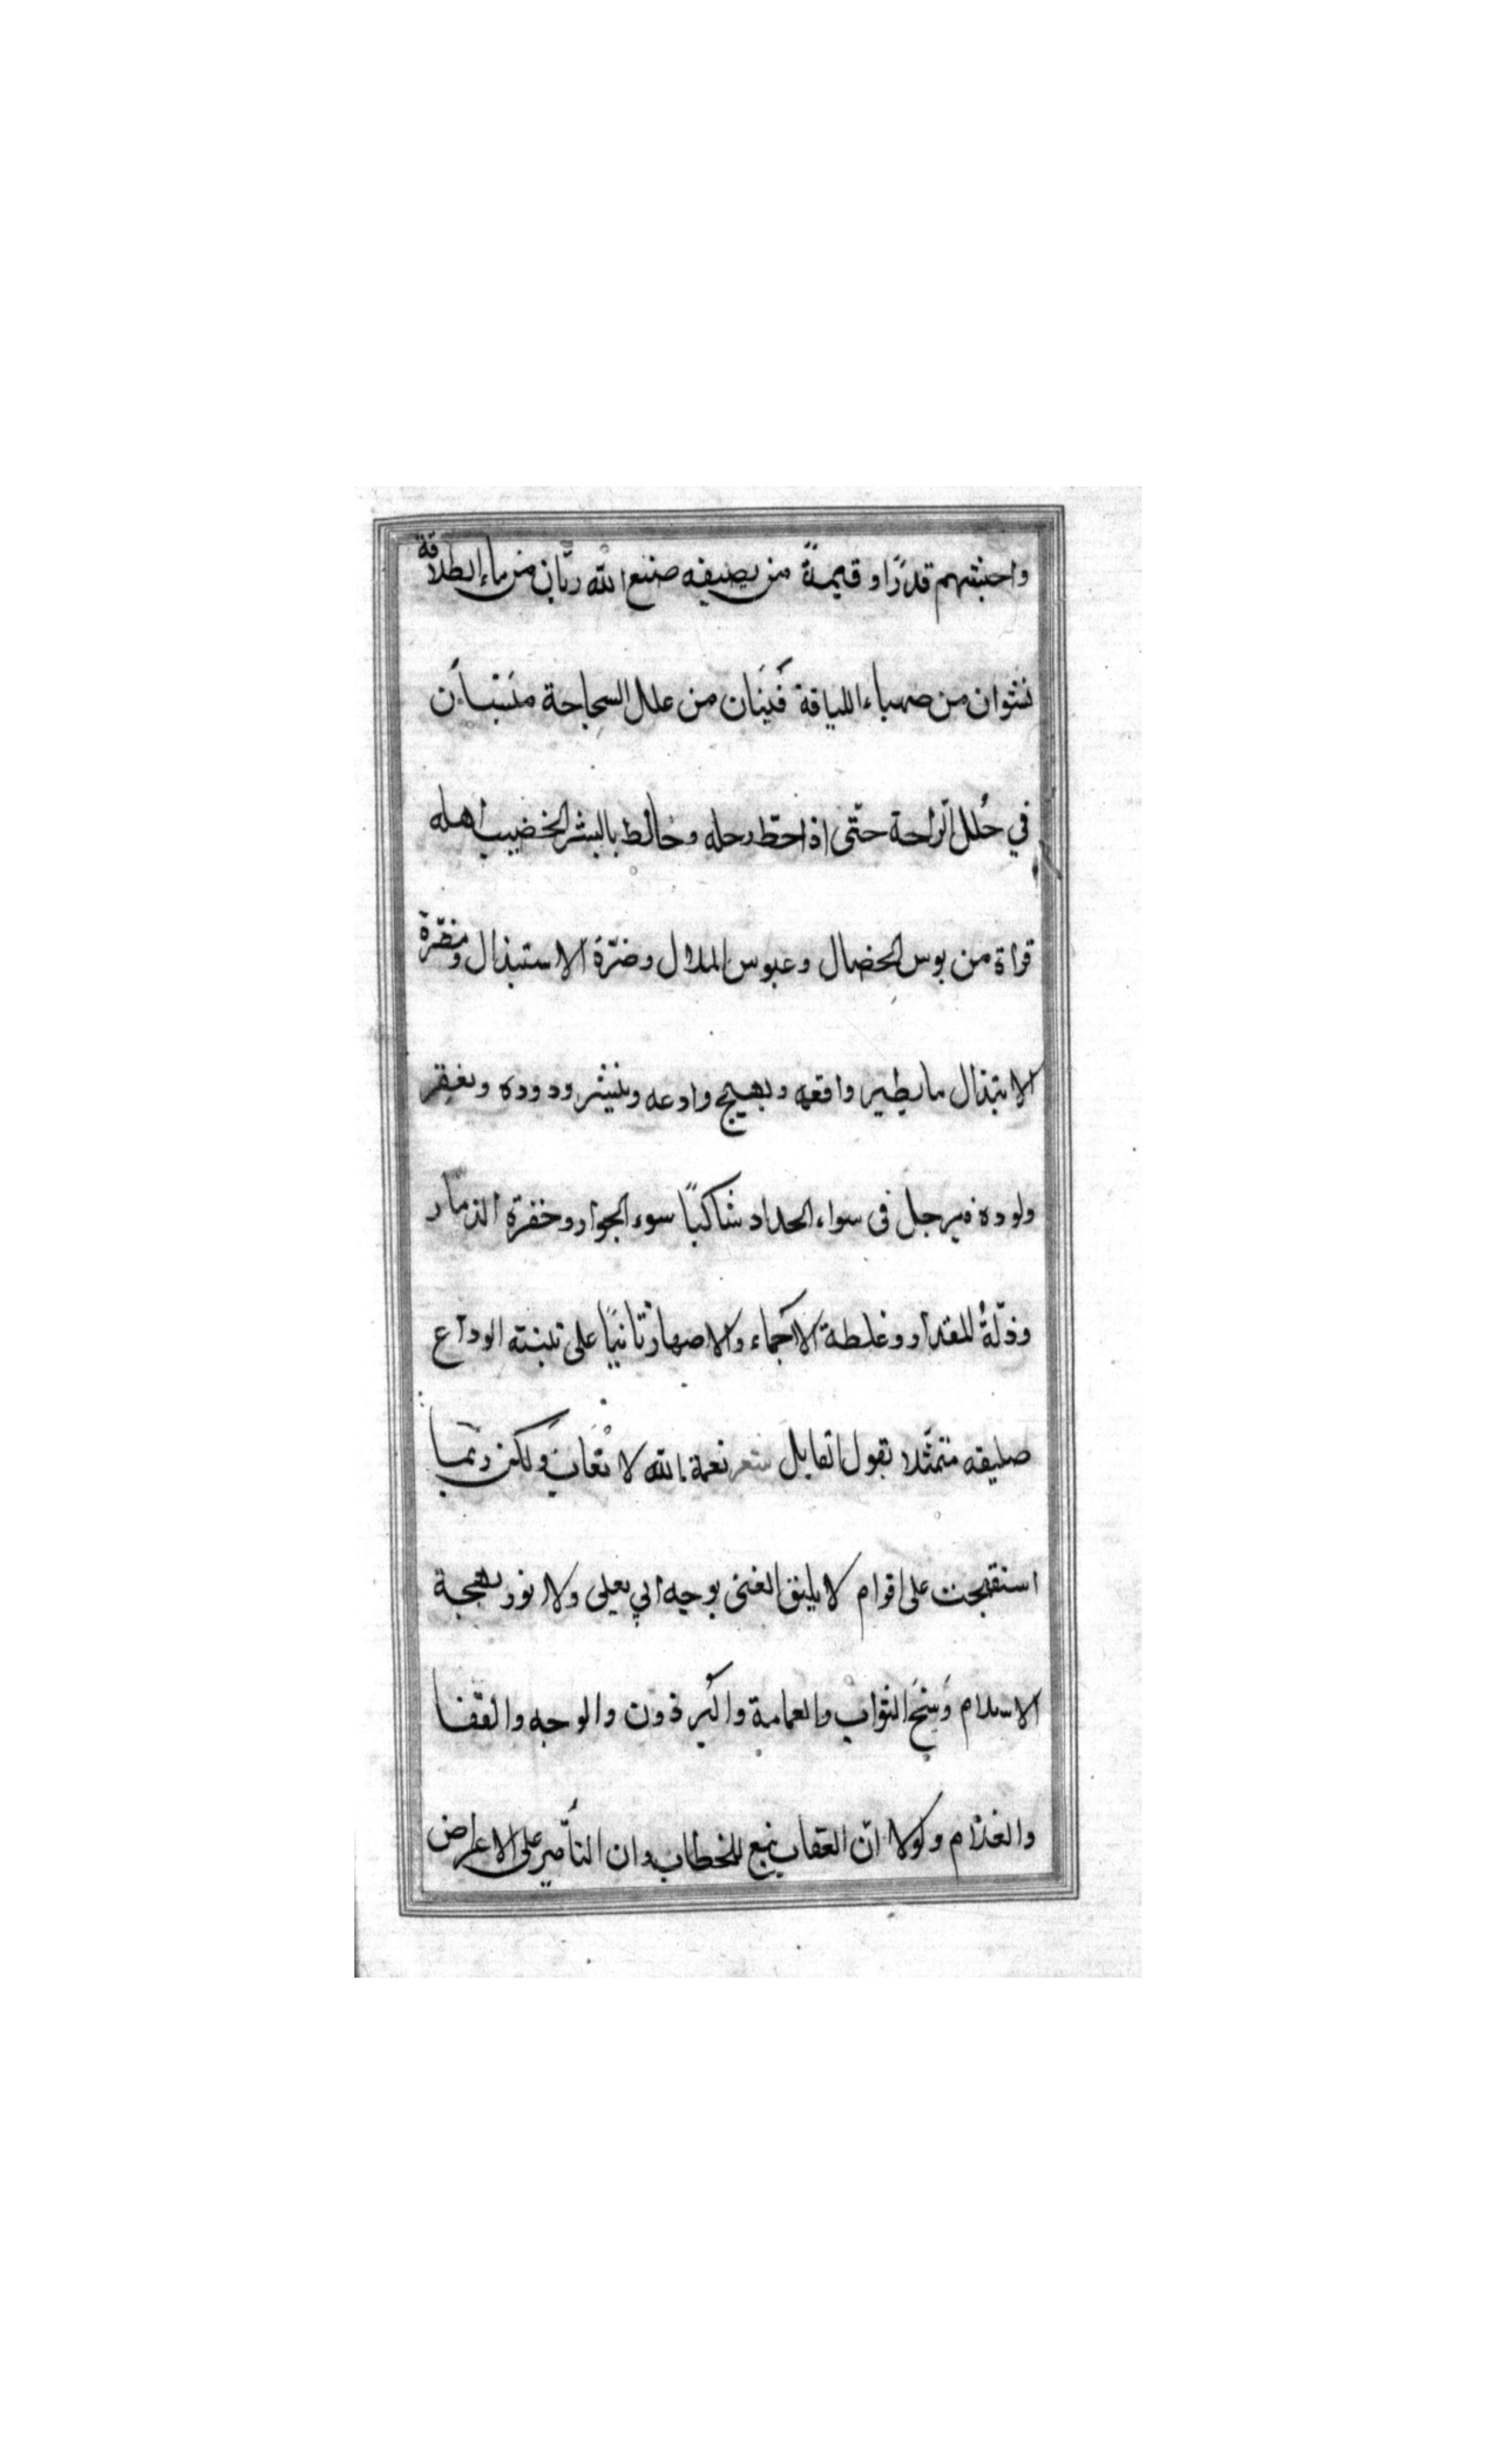 واخبثهم قدرًا وقيمةً من يصيفه صنع الله ريّان من ماء الطلاقة
نشوان من صهباء اللياقة فَينَان من علل السجاحة منسبًان
في حُلل الراحة حتّى اذا حتط رحله وخالط بالبشر الخضيب اهله
قراة من بوس الخصال وعبوس الملال وضرّة الاستبذال ومضرّة
الابتذال ما يطير واقعه ويهيج وادعه وينيشر ودوده ويغقر
ولوده فيرجل فى سواء الحداد شاكيًا سوء الجوار وخفرة الذمّار
وذلّةُ المقدار وغلطة الاحماء والاصهار ثانيًا على تلبنته الوداع
صليفه متمثّلا بقول القايل شعر نعمة الله لا تُعَاب ولكن ربّما
استقبحت على اقوام لا يليق الغنى بوجه ابي يعلى ولا نور بهجة
الاسلام وَسِخَ الثواب والعمامة واكبر ذون والوجه والقفا
والغذّام ولولا انّ العقاب نبع للخطاب وان التأمير على الاعراض